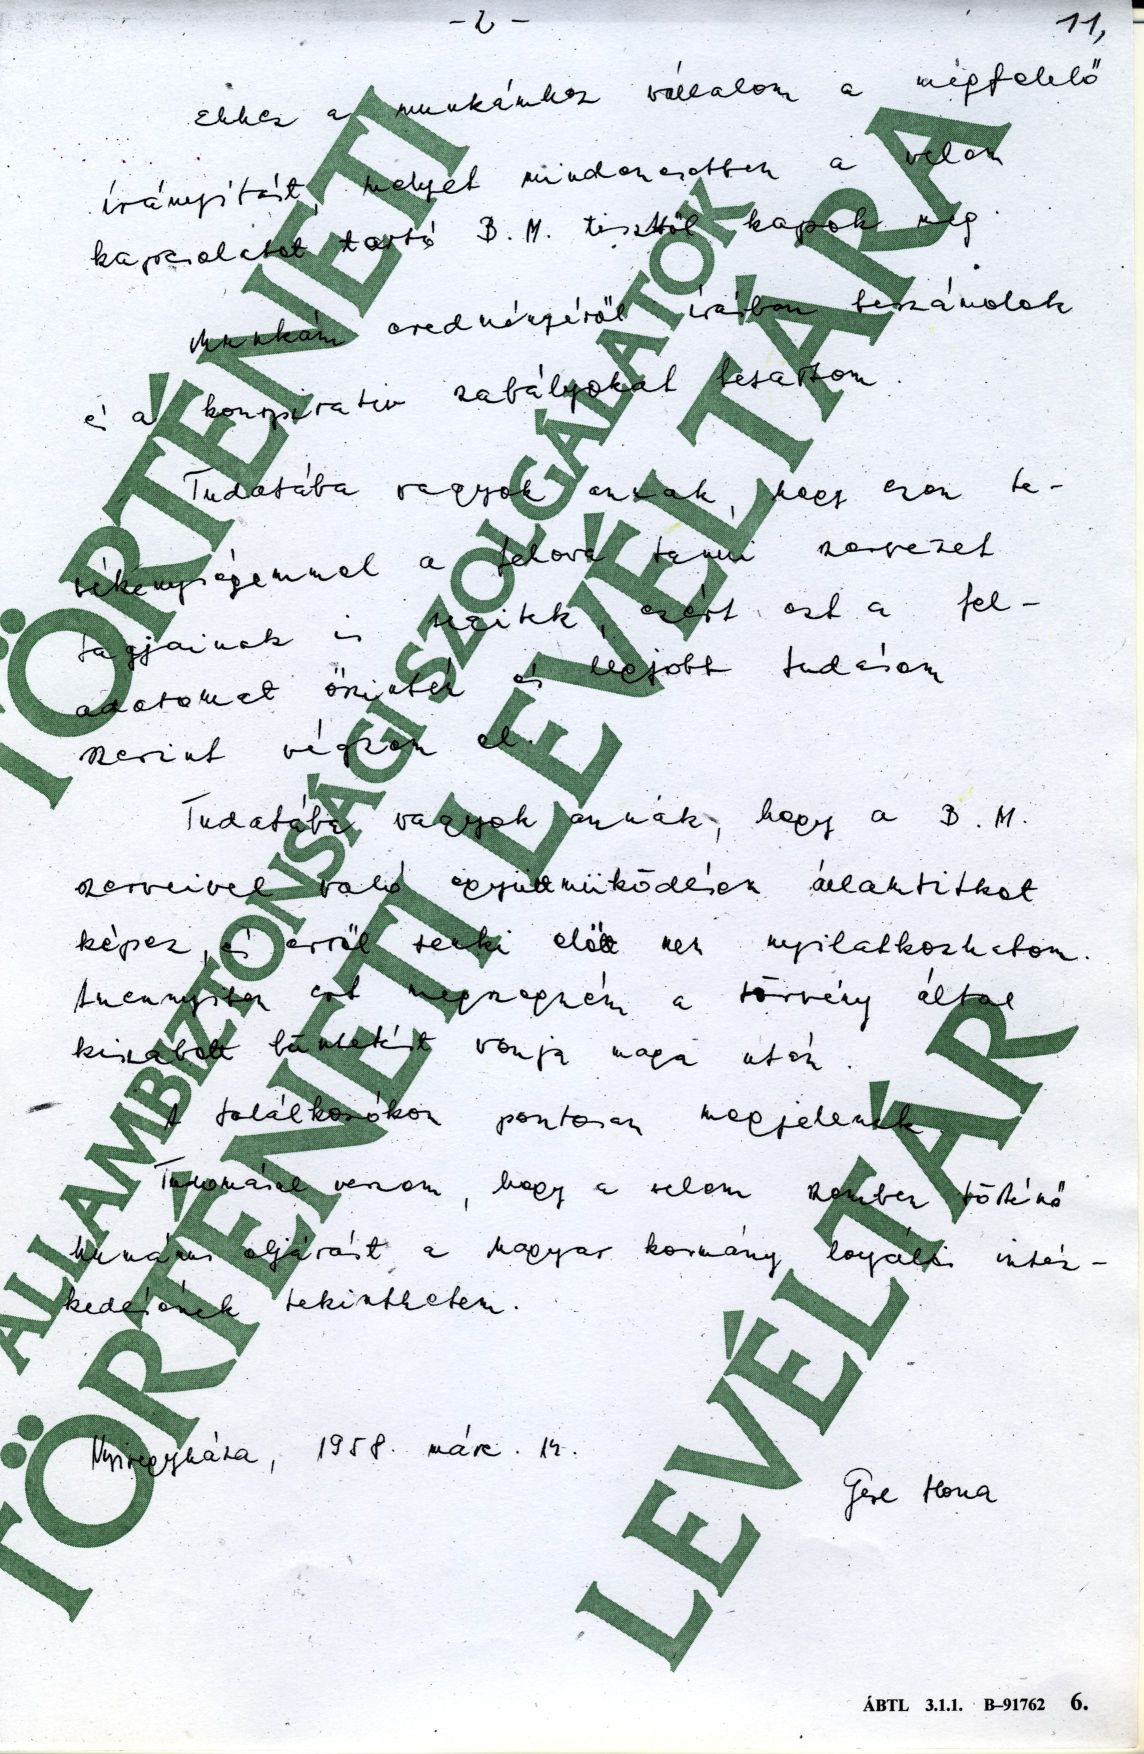 - 2 -
11,
Ehhez a munkámhoz vállalom a megfelelő
irányítást, melyet mindenesetben a velem
kapcsolatot tartó B.M. tiszttől kapok meg.
Munkám eredményéről írásban beszámolok
és a konspirativ szabályokat betartom.
Tudatába vagyok annak, hogy ezen te-
vékenységemmel a szervezet
tagjainak is segitek, ezért ezt a fel-
adatomat őszintén és legjobb tudásom
szerint végzem el.
Tudatába vagyok annak, hogy a B.M.
szerveivel való együttmüködésem államtitkot
képez, és erről senki előtt nem nyilatkozhatom.
Amennyiben ezt megszegném a törvény által
kiszabott büntetést vonja maga után.
A találkozókon pontosan megjelenek.
Tudomásul veszem, hogy a velem szemben történő
humánus eljárást a Magyar kormány loyális intéz-
kedésének tekinthetem.
Nyiregyháza, 1958. márc. 14.
Gere Ilona
TÖRTÉNETI
ÁLLAMBIZTONSÁGI SZOLGÁLATOK
TÖRTÉNETI LEVÉLTÁRA
LEVÉLTÁR
ÁBTL 3.1.1. B–91762 6.